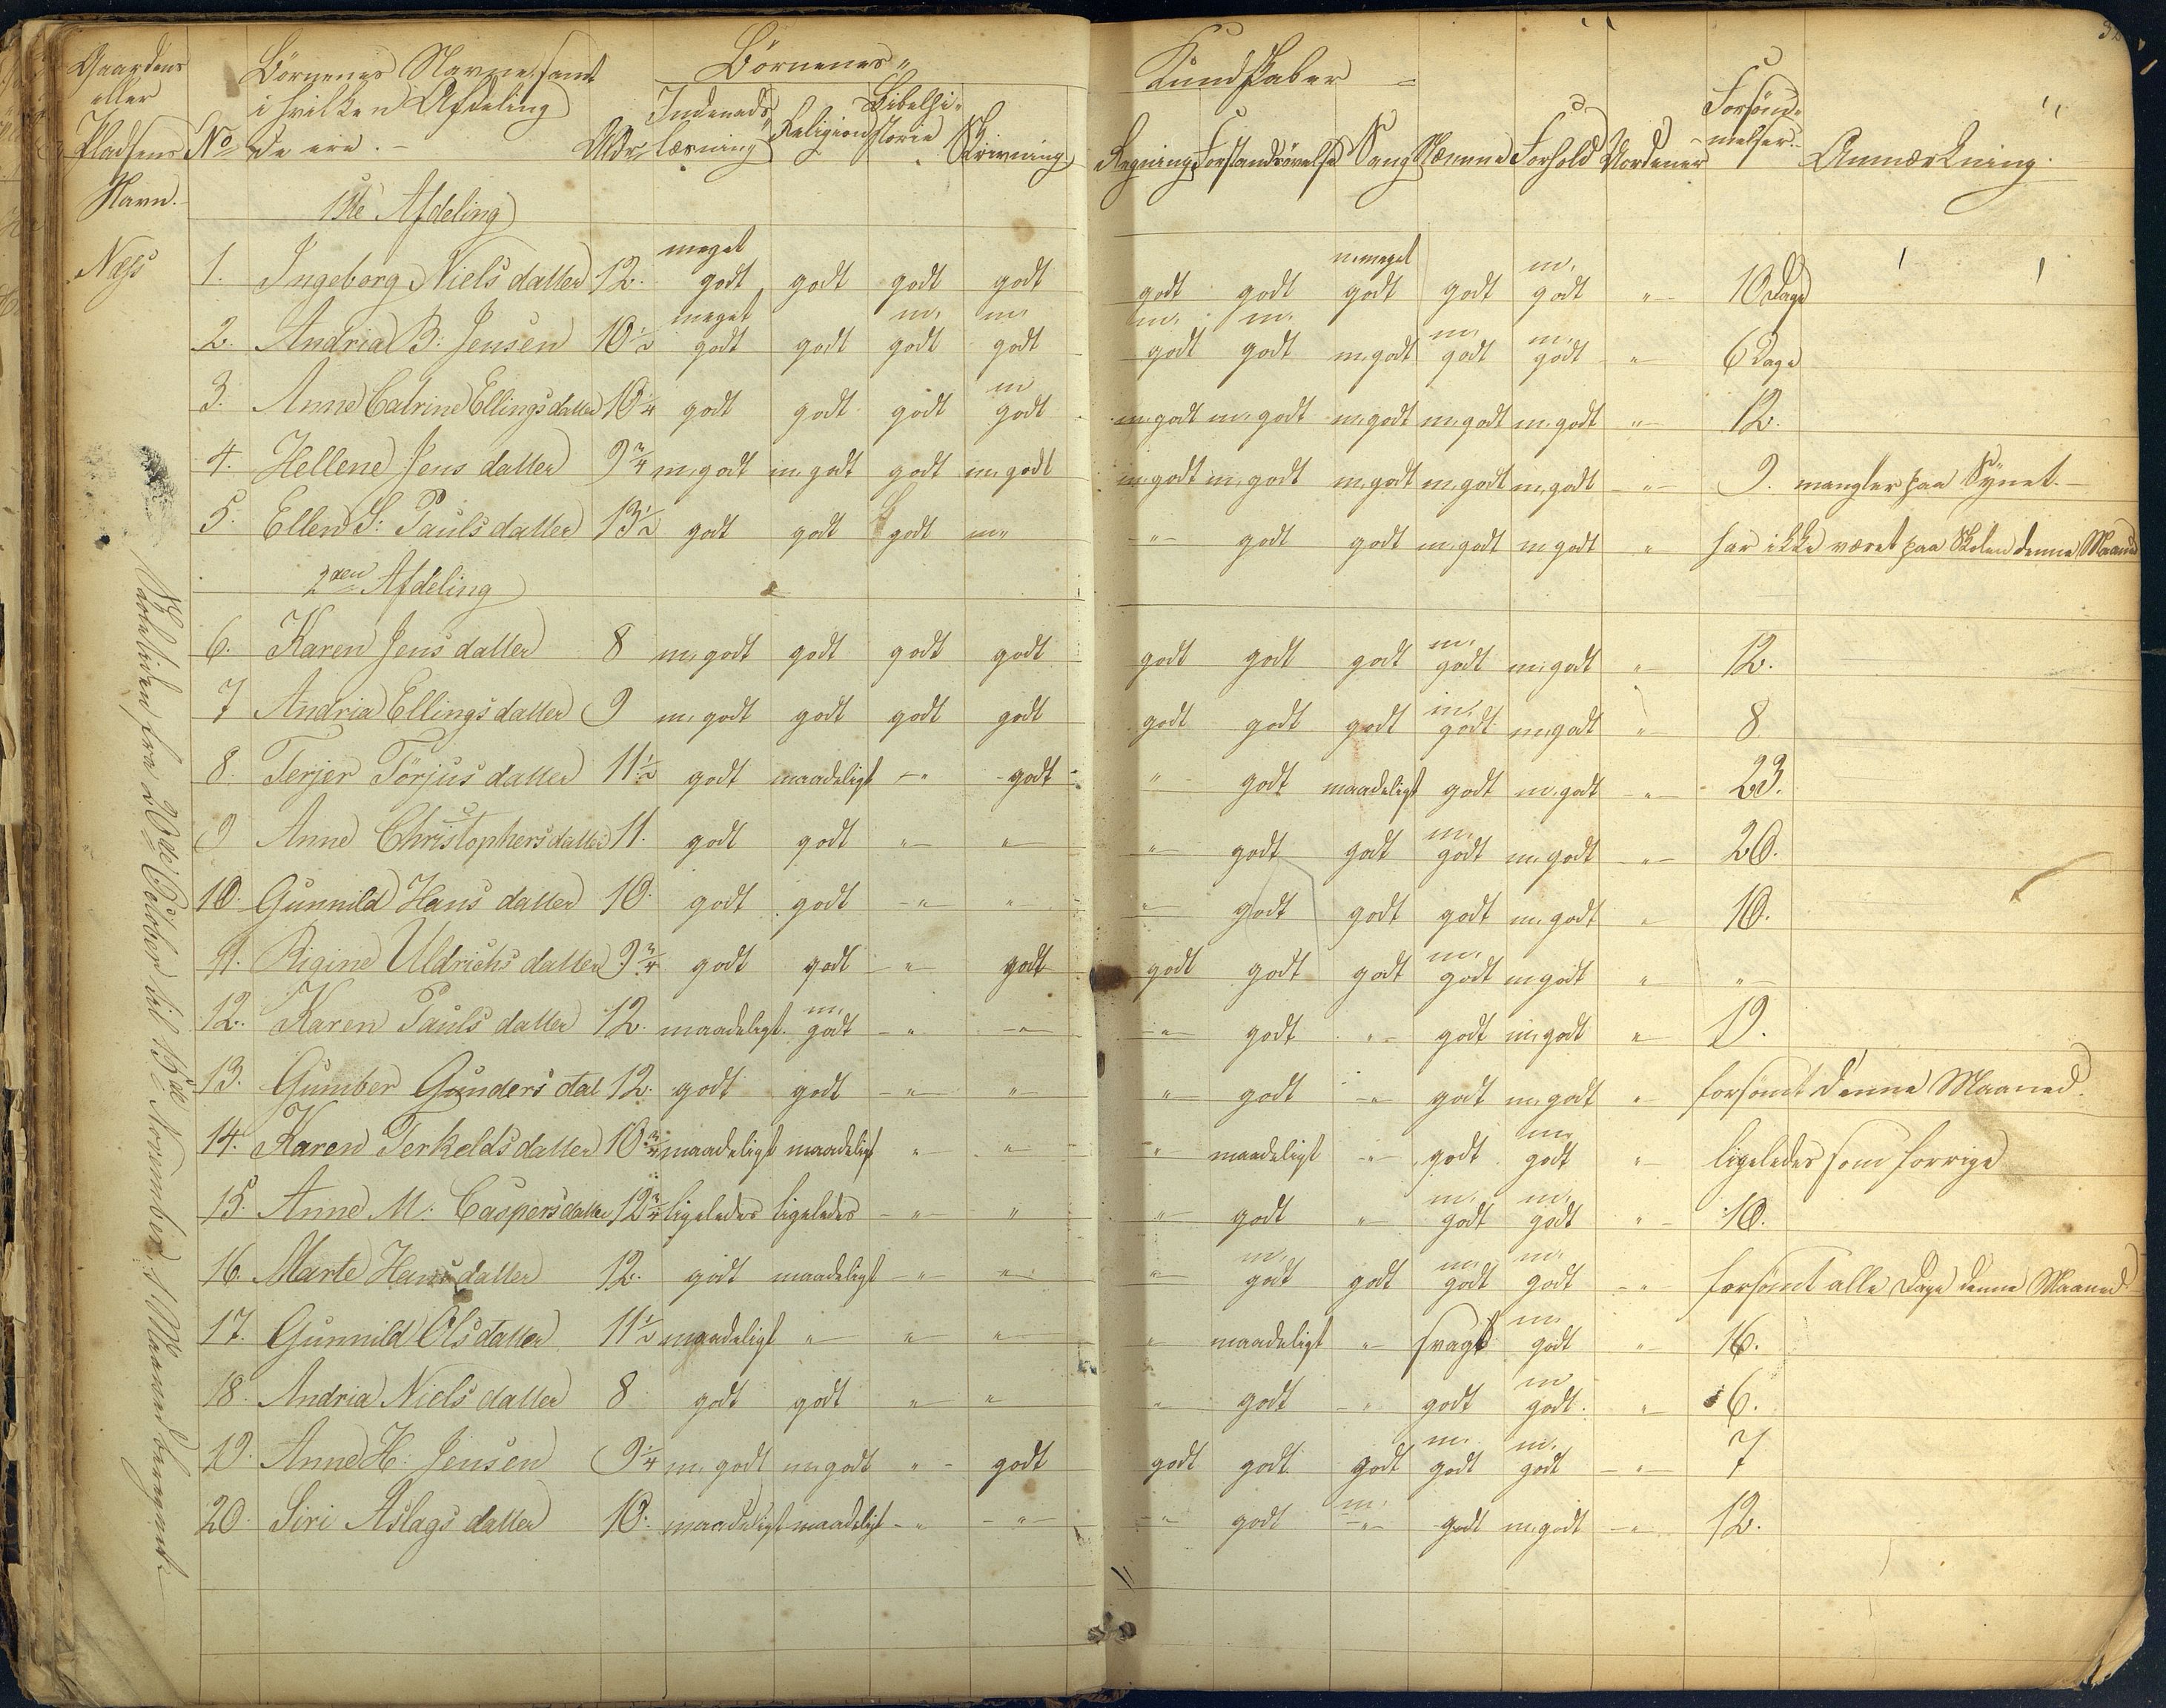 Gaardens eller Pladsens Navn.
No
Börnenes Navne samt i hvilken Afdeling de ere.
Alder
Börnenes Kundskaber
Indenadslæsning
Religion
Bibelhistorie
Skrivning
Regning
Forstandsövelse
Sang
Nemme
Forhold
Forsömmelser
Anmærkning.
1ste Afdeling
Næss 1. Ingeborg Nielsdatter 12. meget godt godt godt godt godt godt meget godt godt m. godt " 10 Dage
2. Andria B. Jensen 10½ meget godt godt m. godt m. godt m. godt m. godt m. godt m. godt m. godt " 6 Dage
3. Anne Catrine Ellingsdatter 10¼ godt godt godt m godt m. godt m. godt m. godt m. godt m. godt " 12.
4. Hellene Jens datter 9¾ m. godt m. godt godt m. godt m. godt m. godt m. godt m. godt m. godt " 9. mangler paa Synet.
5. Ellen S: Pauls datter 13½ godt godt godt m " " godt godt m. godt m. godt " har ikke været paa Skolen denne Maaned
2den Afdeling
6. Karen Jens datter 8 m. godt godt godt godt godt godt godt m. godt m. godt " 12.
7 Andria Ellings datter 9 m. godt godt godt godt godt godt godt m. godt m. godt " 8
8. Terjer Törjus datter 11½ godt maadeligt " godt " godt maadeligt godt m. godt " 23.
9 Anne Christophersdatter 11. godt godt " " " godt godt m. godt m. godt " 20.
10. Gunnild Hans datter 10. godt godt " " " godt godt godt m. godt " 10.
11. Rigine Uldrichs datter 9¾ godt godt " godt godt godt godt m. godt m. godt " "
12. Karen Pauls datter 12. maadeligt m. godt " " " godt " godt m. godt " 19.
13. Gumber Gunders dat 12. godt godt " " " godt " godt m. godt " forsömt denne Maaned.
14. Karen Terkelds datter 10¾ maadeligt maadeligt " " " maadeligt " godt m. godt " ligeledes som forrige
15. Anne M: Caspersdatter 12¾ ligeledes ligeledes " " " godt " m. godt m. godt " 10.
16. Marte Hansdatter 12. godt maadeligt " " " m. godt godt m. godt m. godt " forsömt alle Dage denne Maaned
17. Gunnild Olsdatter 11½ maadeligt " " " " maadeligt " svagt m. godt " 16.
18. Andria Niels datter 8 godt godt " " " godt " godt m godt " 6.
19. Anne H: Jensen 9¼ m. godt m. godt " godt godt godt godt m. godt m. godt " 7
20. Siri Aslags datter 10. maadeligt maadeligt " " " godt m. " godt m. godt " 12.
Skoletiden fra 20de October til 15de November, 1 Maaned beregnet.